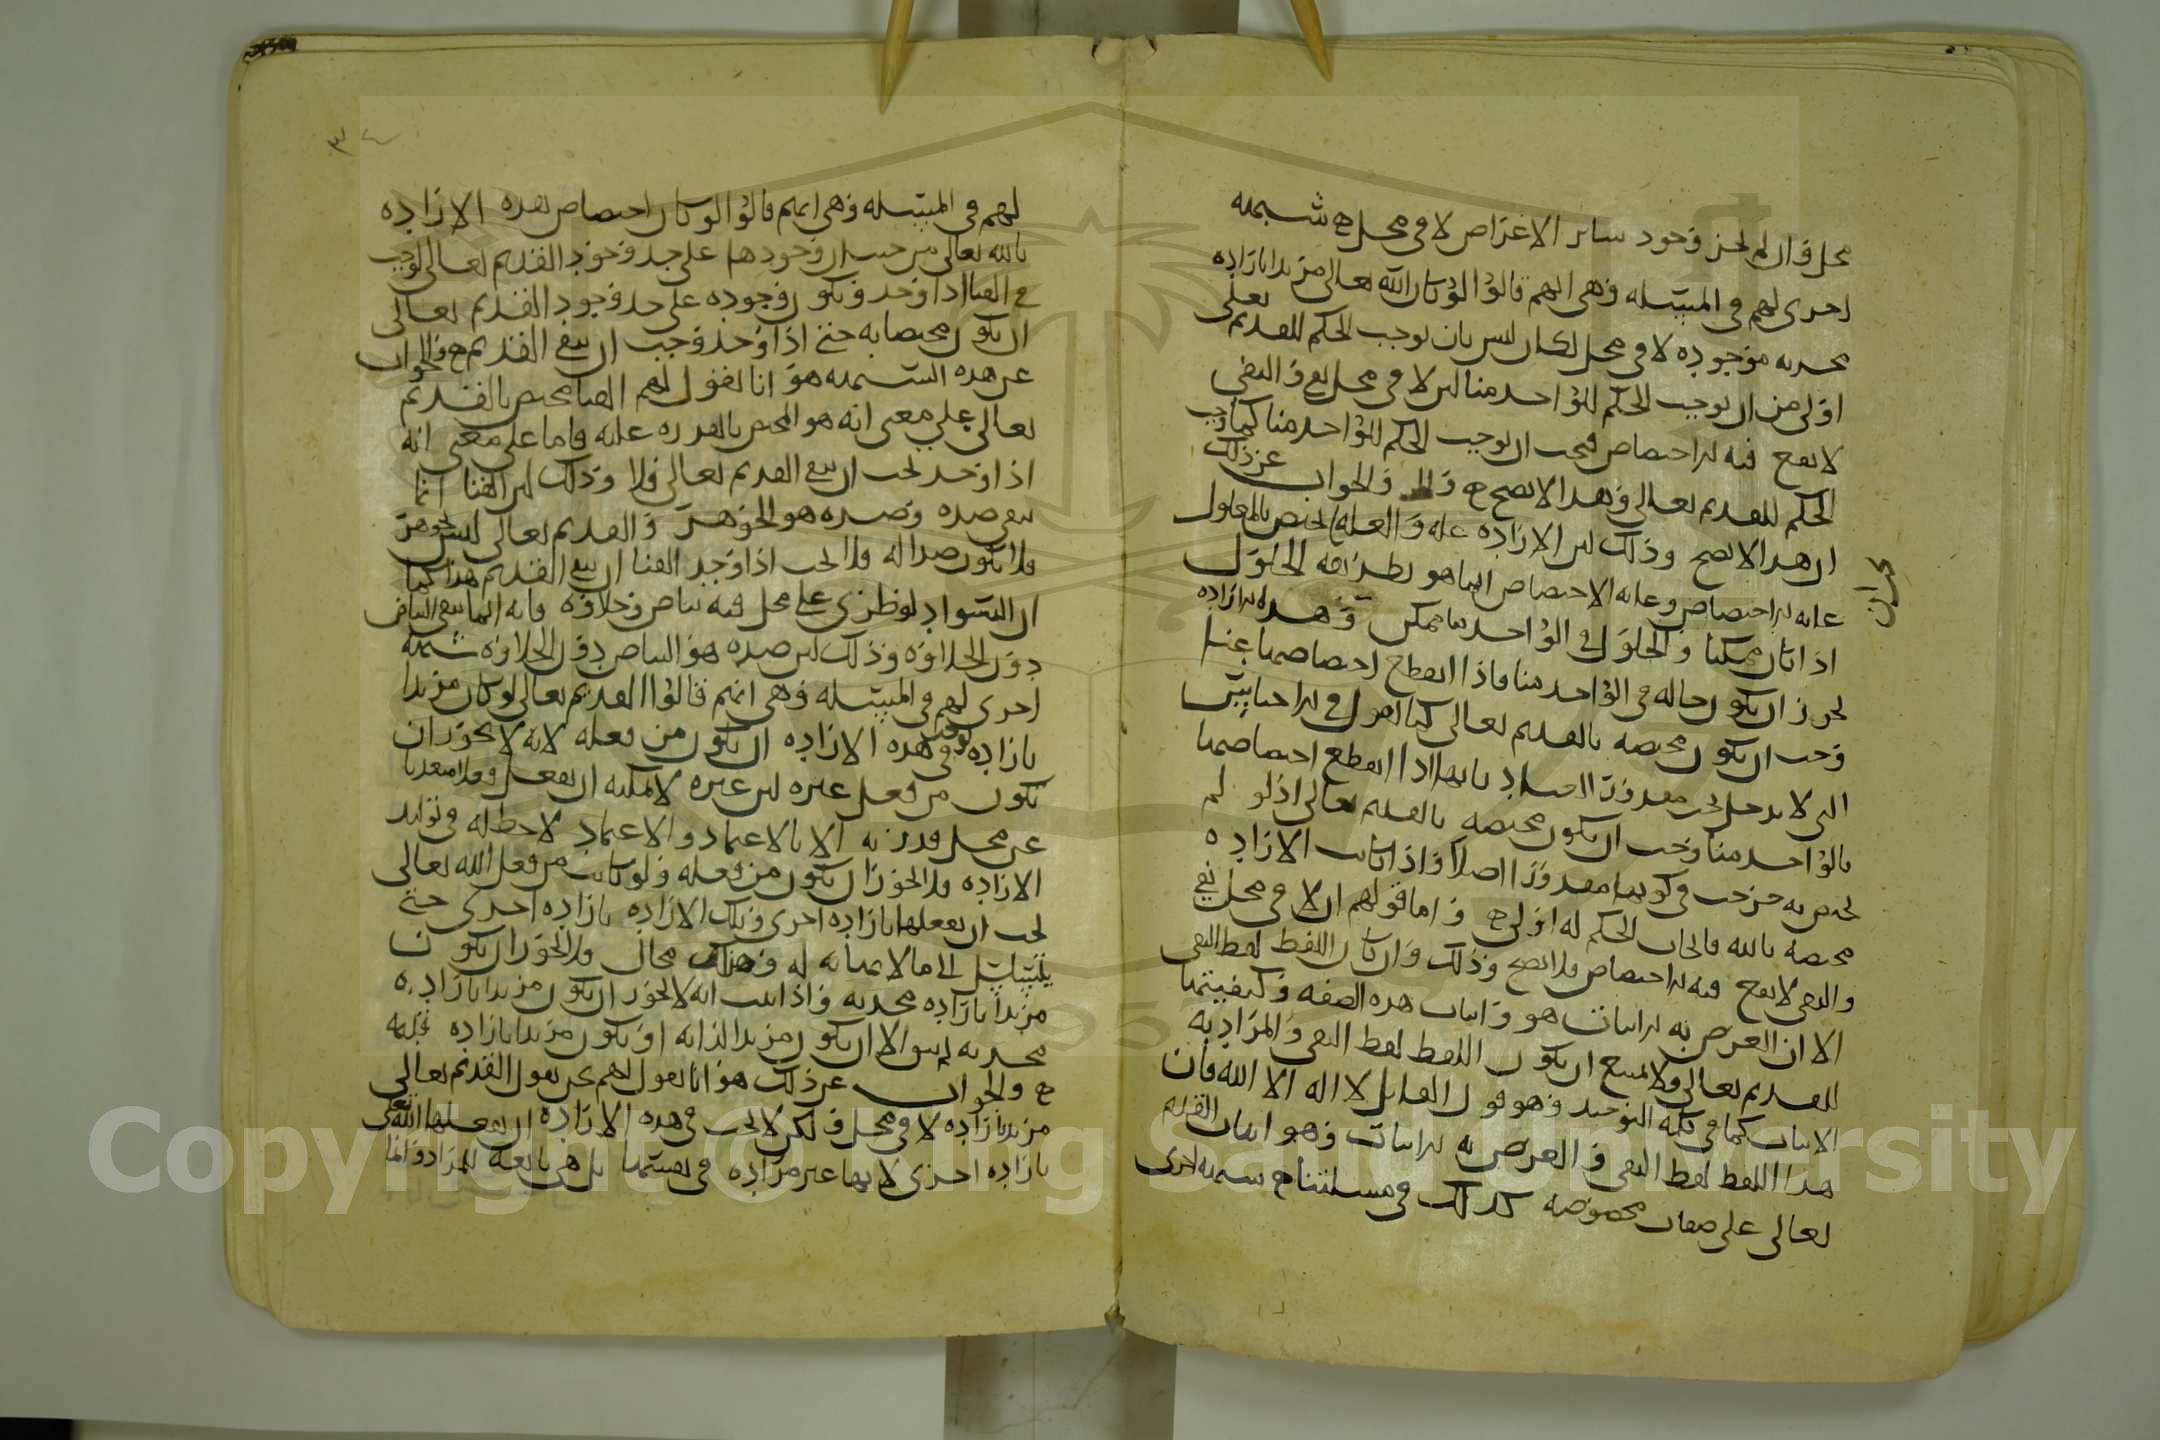 محل وان لم يجز وجود ساير الاعراض لا في محل ح شبهه
اخرى لهم في المسله وهي انهم قالوا لو كان الله تعالى مريدا بارادة
محدثه موجوده لا في محل لكان ليس بان توجب الحكم للقديم تعلى
اولى من ان توجب الحكم للواحد منا لان لا في محل نفي والنفي
لا يقع فيه الاختصاص فيجب ان توجب الحكم للواحد منا كما وجب
الحكم للقديم تعالى وهذا لا يصح ح والجواب عن ذلك
ان هذا لا يصح وذلك لان الارادة علة والعلة تختص بالمعلول
غاية الاختصاص وغاية الاختصاص انما هو بطريقة الحلول
اذا كان ممكنا والحلول في الواحد منا ممكن وهذه الارادة
يجوز ان يكون حاله في الواحد منا فاذا انقطع اختصاصها عنا
وجب ان يكون مختصه بالقديم تعالى كما نقول في الاجناس
التي لا تدخل تحت مقدور العباد بانها اذا انقطع اختصاصها
بالواحد منا وجب ان يكون مختصه بالقديم تعالى اذ لو لم
تختص به خرجت في كونها مقدورا اصلا واذا كانت الارادة
مختصه بالله فايجاب الحكم له اولى ح واما قولهم ان لا في محل نفي
والنفي لا يقع فيه الاختصاص فلا يصح وذلك وان كان اللفظ لفظ النفي
الا ان الغرض به الاثبات هو واثبات هذه الصفه وكيفيتها
للقديم تعالى ولا يمتنع ان يكون اللفظ لفظ النفي والمراد به
الاثبات كما في كلمه التوحيد وهو قول القايل لا اله الا الله فان
هذا اللفظ لفظ النفي والغرض به الاثبات وهو اثبات القديم
تعالى على صفات مخصوصه كذلك في مسلتنا ح شبهه اخرى
لهم في المسله وهي انهم قالوا لو كان اختصاص هذه الارادة
بالله تعالى من حيث ان وجودها على حد وجود القديم تعالى لوجب
في الفنا اذا وجد ويكون وجوده على حد وجود القديم تعالى
ان يكون مختصا به حتى اذا وجد وجب ان ينفي القديم ح والجواب
عن هذه الشبهه هو انا نقول لهم الفنا مختص بالقديم
تعالى على معنى انه هو المختص بالقدره عليه فاما على معنى انه
اذا وجد يجب ان ينفي القديم تعالى فلا وذلك لان الفنا انما
ينفي ضده وضده هو الجوهر والقديم تعالى ليس بجوهر
فلا يكون ضدا له فلا يجب اذا وجد الفنا ان ينفي القديم هذا كما
ان السواد لو طرى على محل فيه بياض وحلاوه فانه انما ينفي البياض
دون الحلاوه وذلك لان ضده هو البياض دون الحلاوه شبهه
اخرى لهم في المسله وهي انهم قالوا القديم تعالى لو كان مريدا
باراده لوجب في هذه الاراده ان يكون من فعله لانه لا يجوز ان
تكون من فعل غيره لان غيره لا يمكنه ان يفعل فعلا متعديا
عن محل قدرته الا بالاعتماد والاعتماد لا حظ له في توليد
الاراده فلا يجوز ان تكون من فعله ولو كانت من فعل الله تعالى
لوجب ان يفعلها باراده اخرى وتلك الارادة باراده اخرى حتى
يتسلسل الى ما لا غاية له وذلك محال فلا يجوز ان يكون
مريدا باراده محدثه واذا ثبت انه لا يجوز ان يكون مريدا باراده
محدثه لم يبق الا ان يكون مريدا لذاته او يكون مريدا باراده قديمه
ح والجواب عن ذلك هو انا نقول لهم نحن نقول القديم تعالى
مريد باراده لا في محل ولكن لا يجب في هذه الارادة ان يفعلها الله تعلى
باراده اخرى لانها غير مراده في نفسها بل هي تابعة للمراد وانما
Copyright © King Saud University